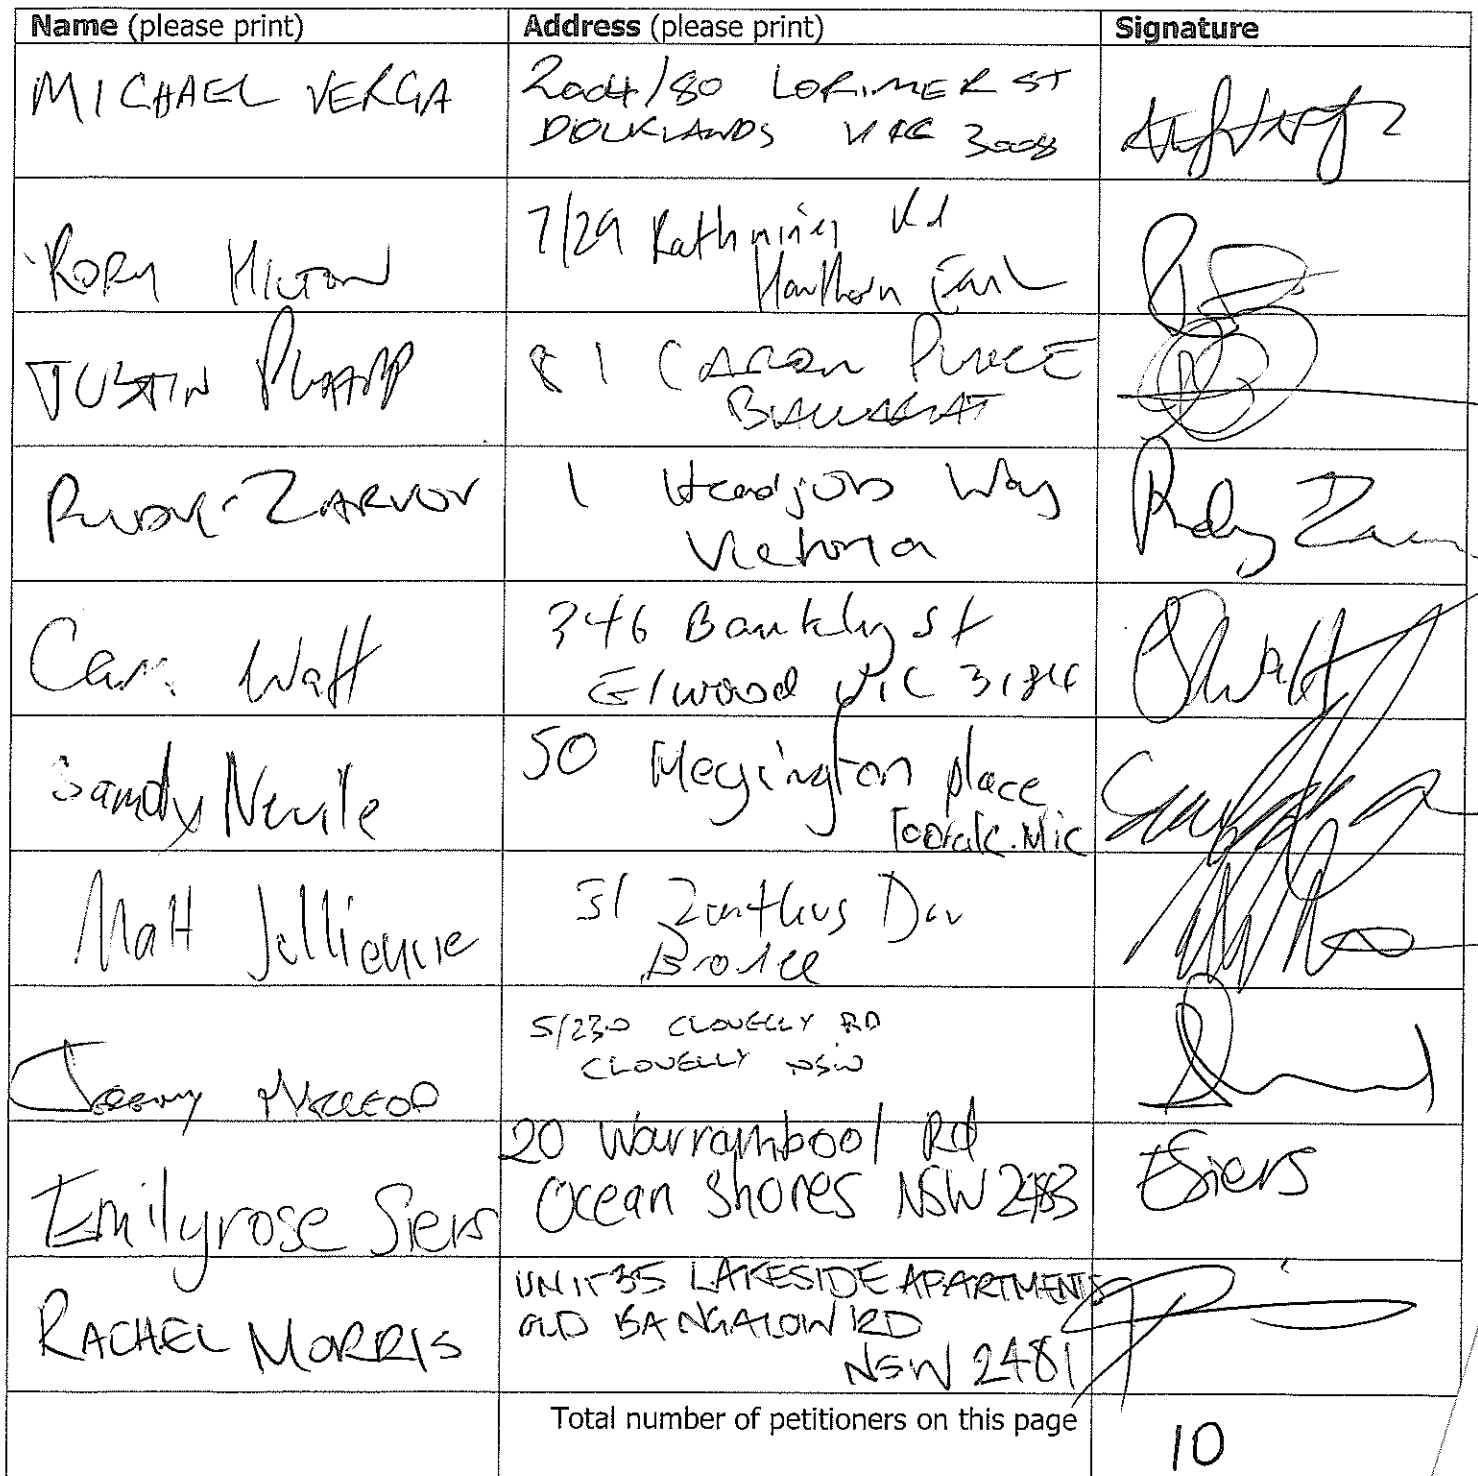 Name (please print) Address (please print) Signature
MICHAEL VERGA 2004/80 LORIMER ST
DOCKLANDS VIC 3008
RORY HILTON 7/29 Rathmines Rd
Hawthorn East
JUSTIN 81 PLACE
BALLARAT
RUDY ZARVOV 1 Headjob Way
Victoria Rudy
Cam Watt 346 Barkly St
Elwood VIC 3184 Watt
Sandy Nevile 50 place
Toorak. Vic
Matt Jullienne 31 Zanthus Drv
Broulee
Jeremy McLEOD 5/230 CLOVELLY RD
CLOVELLY NSW
Emilyrose Siers 20 Warrambool Rd
Ocean Shores NSW 2483 ESiers
RACHEL MORRIS UNIT 35 LAKESIDE APARTMENTS
OLD BANGALOW RD
NSW 2481
Total number of petitioners on this page 10